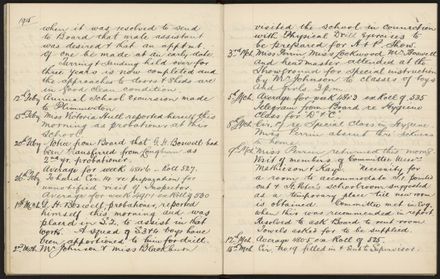 1915
when it was resolved to send
to Board that male assistant
was desired & that an appt
of one be made at an early date
turning & sanding held over for
three years is now completed and
the approaches to doors & sheds are
in good clean condition.
12th Feby Annual School excursion made
to Plimmerton.
15th Feby Miss Victoria Hull reported herself this
morning as probationer at this
School.
20th Feby Notice from Board that G. H. Boswell had
been transferred from as
2nd yr. probationer.
Average for week Roll 527
26th " to hand Cir. re re propagation for
unnotified visit of Inspector.
Average for week Roll 530
1st Mch G. H. Boswell, probationer, reported
himself this morning and was
placed in S.2. to assist in that
work. A squad of S.3 & 4 boys have
been apportioned to him for drill.
2nd Mch Mr Johnson & Miss Blackburn
visited the school in connection
with Physical Drill Exercises to
be prepared for A & P. Show.
3rd Mch Miss Perrin, Miss Lockwood, Mr Boswell
and headmaster attended at the
Showground for special instruction
by Mr Johnson to classes of boys
and girls 3 p.m.
5th Mch Average for week 487.3 and Roll of 525
Telegram from Board re Hygiene
Class for "B" & "C".
8th Mch Cir. re Special Class in Hygiene
Miss Perrin absent thro' sickness
9th Mch Miss Perrin returned this morng
Visit of members of Committee Messrs
Mathieson & Kays. Necessity for
a room to accommodate pupils
out & St Peter's schoolroom suggested
as a temporary place till new room
is obtained. Committee met in evg.
when this was recommended in report
Resolved to ask Board to rent room
Towels asked for to be supplied.
12th Mch Average 480.5 on Roll of 525.
15th Mch Cir. No 4 filled in & sent to Supervisor.